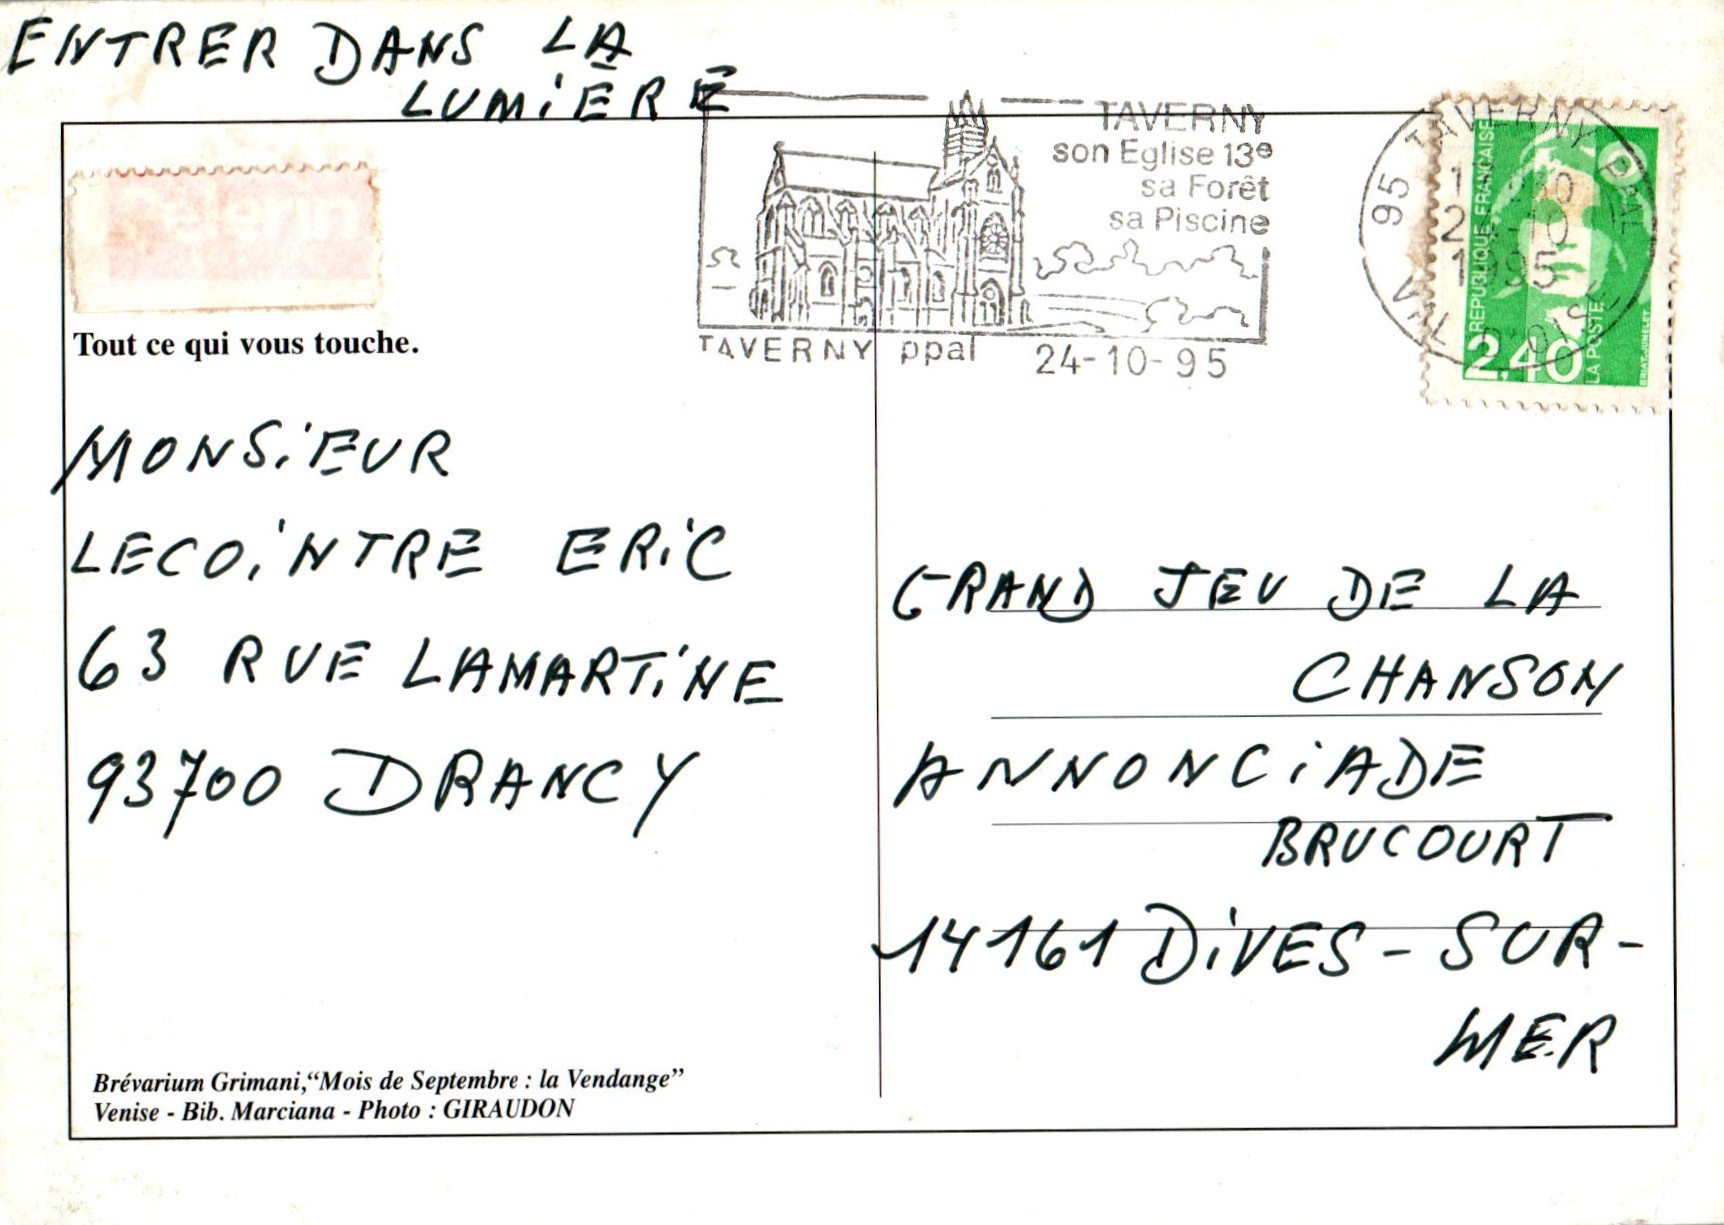 ENTRER DANS LA
LUMIÈRE
TAVERNY
son Eglise 13e
sa Forêt
sa Piscine
TAVERNY ppal 24-10-95
95 TAVERNY PPAL
1995
VAL D'OISE
REPUBLIQUE FRANÇAISE
2,40
LA POSTE
BRIAT-JUMELET
Pèlerin
Tout ce qui vous touche.
MONSIEUR
LECOINTRE ERIC
63 RUE LAMARTINE
93700 DRANCY
GRAND JEU DE LA
CHANSON
ANNONCIADE
BRUCOURT
14161 DIVES-SUR-
MER
Brévarium Grimani,“Mois de Septembre : la Vendange”
Venise - Bib. Marciana - Photo : GIRAUDON